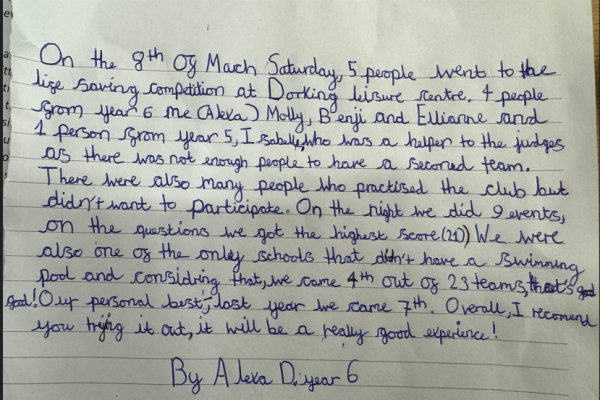 On the 8th of March Saturday, 5 people went to the
life saving competition at Dorking leisure centre. 4 people
from year 6 me (Alexa) Molly, Benji and Ellianne and
1 person from year 5, Isabelle, who was a helper to the judges
as there was not enough people to have a seconed team.
There were also many people who practised the club but
didn't want to participate. On the night we did 9 events,
on the questions we got the highest score (20)) We were
also one of the only schools that didn't have a swimming
pool and considring that, we came 4th out of 23 teams, that's
good! Our personal best, last year we came 7th. Overall, I recomend
you trying it out, it will be a really good experience!
By Alexa D. year 6